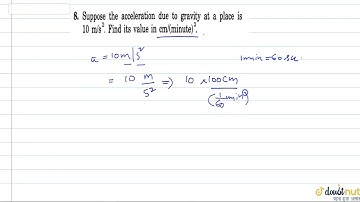 8. Suppose the acceleration due to gravity at a place is
10 m/s². Find its value in cm/(minute)².
a = 10m/s² 1min = 60sec
= 10 m/s² ⇒ 10 × 100cm/(1/60 min)²
doubtnut